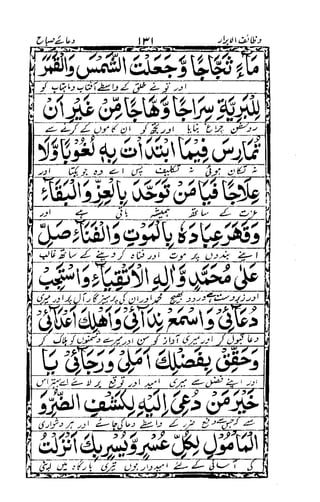 وظائف الابرار ۱۳۱ دعائے صباح
مَآءً ثَجَّاجًا وَّجَعَلْتَ الشَّمْسَ وَالْقَمَرَ
اور تو نے خلق کے واسطے آفتاب و ماہتاب کو
لِلْبَرِيَّةِ سِرَاجًا وَّهَّاجًا مِّنْ غَيْرِ اَنْ
روشن چراغ بنایا اور تجھ کو ان کاموں کے کرنے سے
تُمَارِسَ فِيْمَا ابْتَدَأْتَ بِهٖ لُغُوْبًا وَّلَا
نہ تکان ہوئی نہ تکلیف پس اے وہ جو یکتا اور
عِلَاجًا فَيَا مَنْ تَوَحَّدَ بِالْعِزِّ وَالْبَقَآءِ
عزت کے ساتھ ہمیشہ باقی ہے اور
وَقَهَرَ عِبَادَهٗ بِالْمَوْتِ وَالْفَنَآءِ صَلِّ
اپنے بندوں پر موت اور فنا کر دینے کے ساتھ غالب
عَلٰى مُحَمَّدٍ وَّاٰلِهِ الْاَتْقِيَآءِ وَاسْتَجِبْ
درود بھیج محمد اور ان کی پرہیزگار آل پر اور میری
دُعَآئِيْ وَاسْمَعْ نِدَآئِيْ وَاَهْلِكْ اَعْدَآئِيْ
دعا قبول کر اور میری آواز کو سن اور میرے دشمنوں کو ہلاک کر
وَحَقِّقْ بِفَضْلِكَ اَمَلِيْ وَرَجَآئِيْ يَا
اور اپنے فضل سے میری امید اور توقع بر لا اے بہتر اس
خَيْرَ مَنْ دُعِيَ اِلَيْهِ لِكَشْفِ الضُّرِّ وَ
سے کہ جس کو دفع ضرر کے واسطے دعا کی جائے اور ہر دشواری
الْمَاْمُوْلِ لِكُلِّ عُسْرٍ وَّيُسْرٍ بِكَ اَنْزَلْتُ
کی آسانی کے لئے امیدوار ہوں تیری بارگاہ میں اپنی